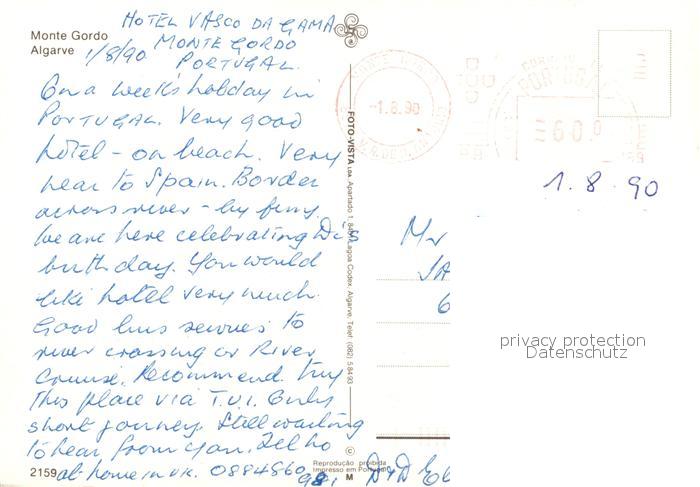 HOTEL VASCO DA GAMA
Monte Gordo
Algarve
1/8/90 MONTE GORDO
PORTUGAL.
On a week's holiday in
PORTUGAL. Very good
hotel - on beach. Very
near to Spain. Border
across river - by ferry.
We are here celebrating Di's
birthday. You would
like hotel very much.
Good bus services to
river crossing or River
Cruise. Recommend. Try
this place via T.U.I. Only
short journey. Still waiting
to hear from you. Tel no
at home in UK. 0884860
981
2159
FOTO-VISTA Lda. Apartado 1. Lagoa Codex. Algarve. Telef. (082) 5 84 93
©
Reprodução proibida
Impresso em Portugal
M
-1.8.90
PORTUGAL
60.0
1.8.90
Mr
privacy protection
Datenschutz